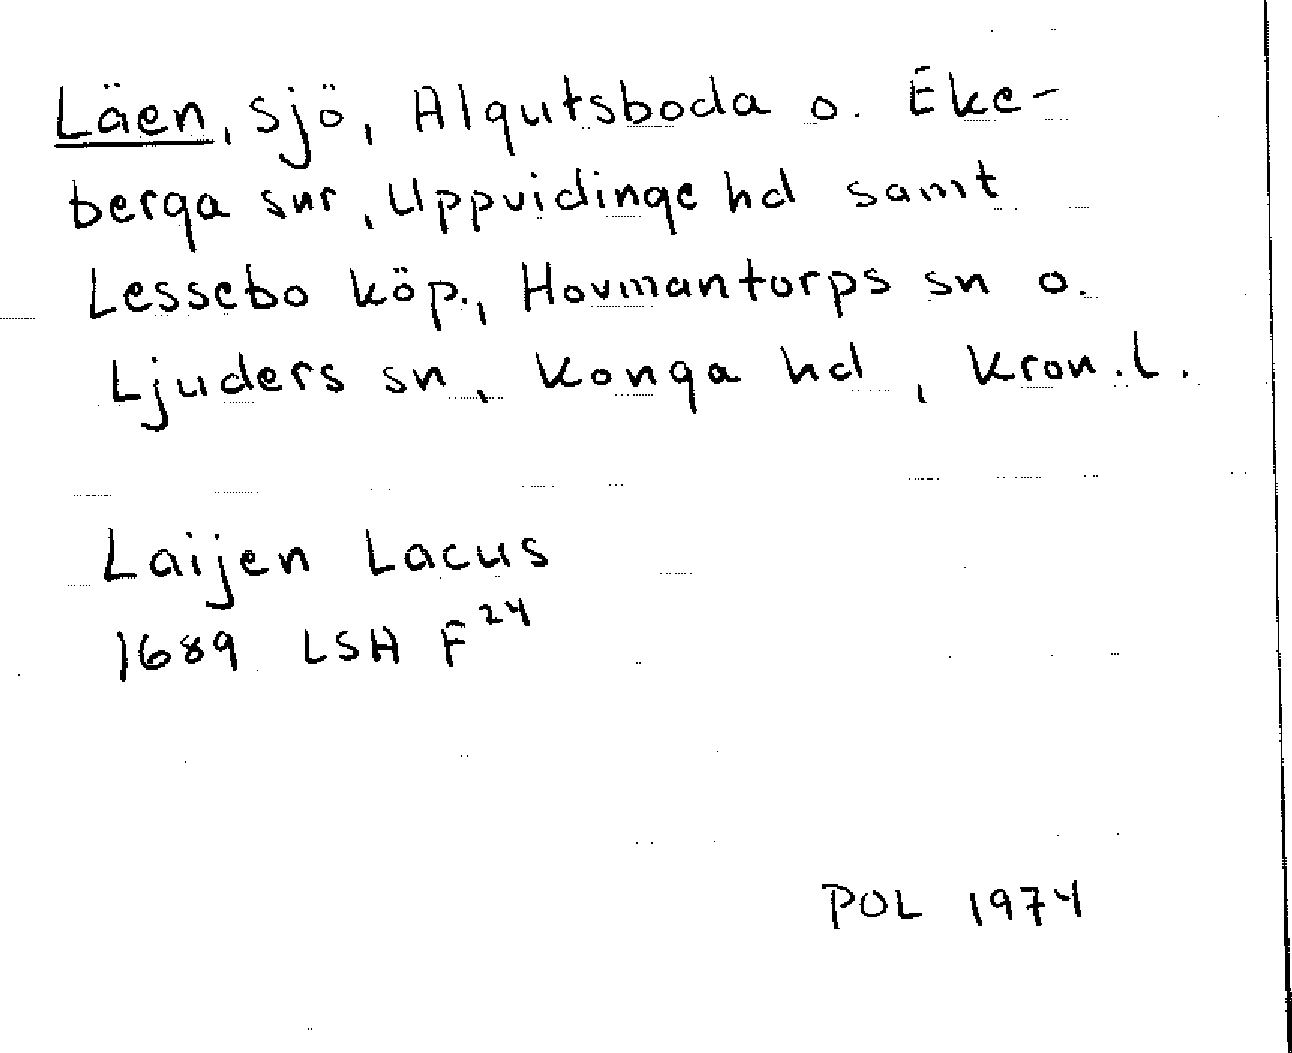 Läen, sjö, Algutsboda o. Eke-
berga snr, Uppvidinge hd samt
Lessebo köp., Hovmantorps sn o.
Ljuders sn, Konga hd, Kron.l.
Laijen Lacus
1689 LSH F²⁴
POL 1974